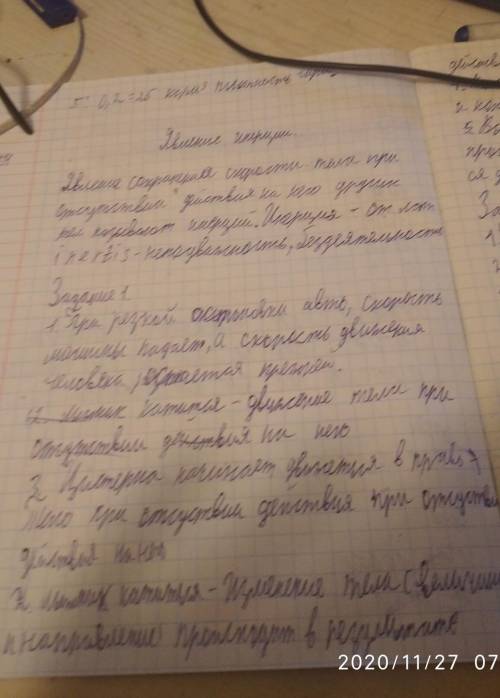 0,2=25
Явление инерции.
Явление сохранения скорости тела при
отсутствии действия на него других
тел называют инерцией. Инерция - от лат.
inertis - неподвижность, бездеятельность
Задание 1
1. При резкой остановки авто, скорость
машины падает, а скорость движения
человека остается прежней.
2. мячик катится - движение тела при
отсутствии действия на него
3. Цистерна начинает двигаться в
тело при отсутствии действия при отсутствии
действия на него
3. мячик катиться - Изменение тела (величины
и направление) происходит в результате
2020/11/27 07